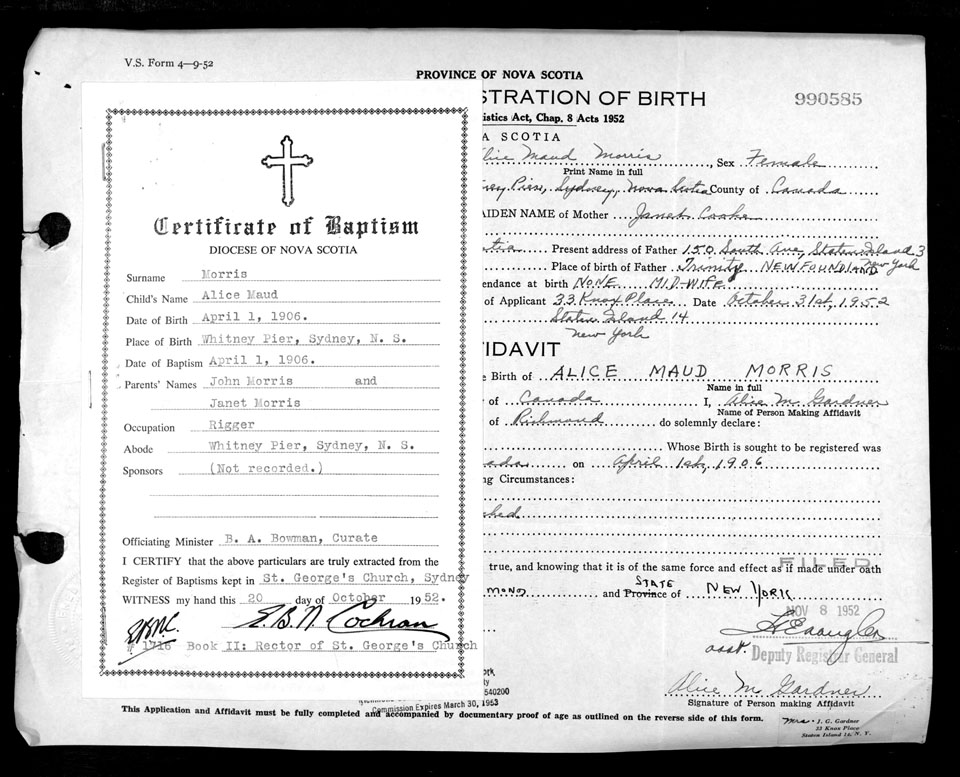 V.S. Form 4—9-52
PROVINCE OF NOVA SCOTIA
STRATION OF BIRTH
990585
istics Act, Chap. 8 Acts 1952
A SCOTIA
lice Maud Morris, Sex Female
Print Name in full
ney Pier, Sydney, Nova Scotia County of Canada
AIDEN NAME of Mother Janet Cooke
otia Present address of Father 150 South Ave, Staten Island 3
New York
Place of birth of Father Trinity NEWFOUNDLAND
endance at birth NONE MID-WIFE
of Applicant 33 Knox Place Date October 31st, 1952
Staten Island 14
New York
FIDAVIT
e Birth of ALICE MAUD MORRIS
Name in full
y of Canada I, Alice M. Gardner
Name of Person Making Affidavit
of Richmond do solemnly declare:
Whose Birth is sought to be registered was
nada on April 1st, 1906
ng Circumstances:
ched
true, and knowing that it is of the same force and effect as if made under oath
FILED
MOND and Province of STATE NEW YORK
NOV 8 1952
asst. Deputy Registrar General
ork
ty
540200
Commission Expires March 30, 1953
Alice M. Gardner
Signature of Person making Affidavit
This Application and Affidavit must be fully completed and accompanied by documentary proof of age as outlined on the reverse side of this form.
Mrs. J. G. Gardner
33 Knox Place
Staten Island 14, N. Y.
Certificate of Baptism
DIOCESE OF NOVA SCOTIA
Surname Morris
Child's Name Alice Maud
Date of Birth April 1, 1906.
Place of Birth Whitney Pier, Sydney, N. S.
Date of Baptism April 1, 1906.
Parents' Names John Morris and
Janet Morris
Occupation Rigger
Abode Whitney Pier, Sydney, N. S.
Sponsors (Not recorded.)
Officiating Minister B. A. Bowman, Curate
I CERTIFY that the above particulars are truly extracted from the
Register of Baptisms kept in St. George's Church, Sydney
WITNESS my hand this 20 day of October 1952.
E.B.N.C. E.B.N. Cochran
1716 Book II: Rector of St. George's Church